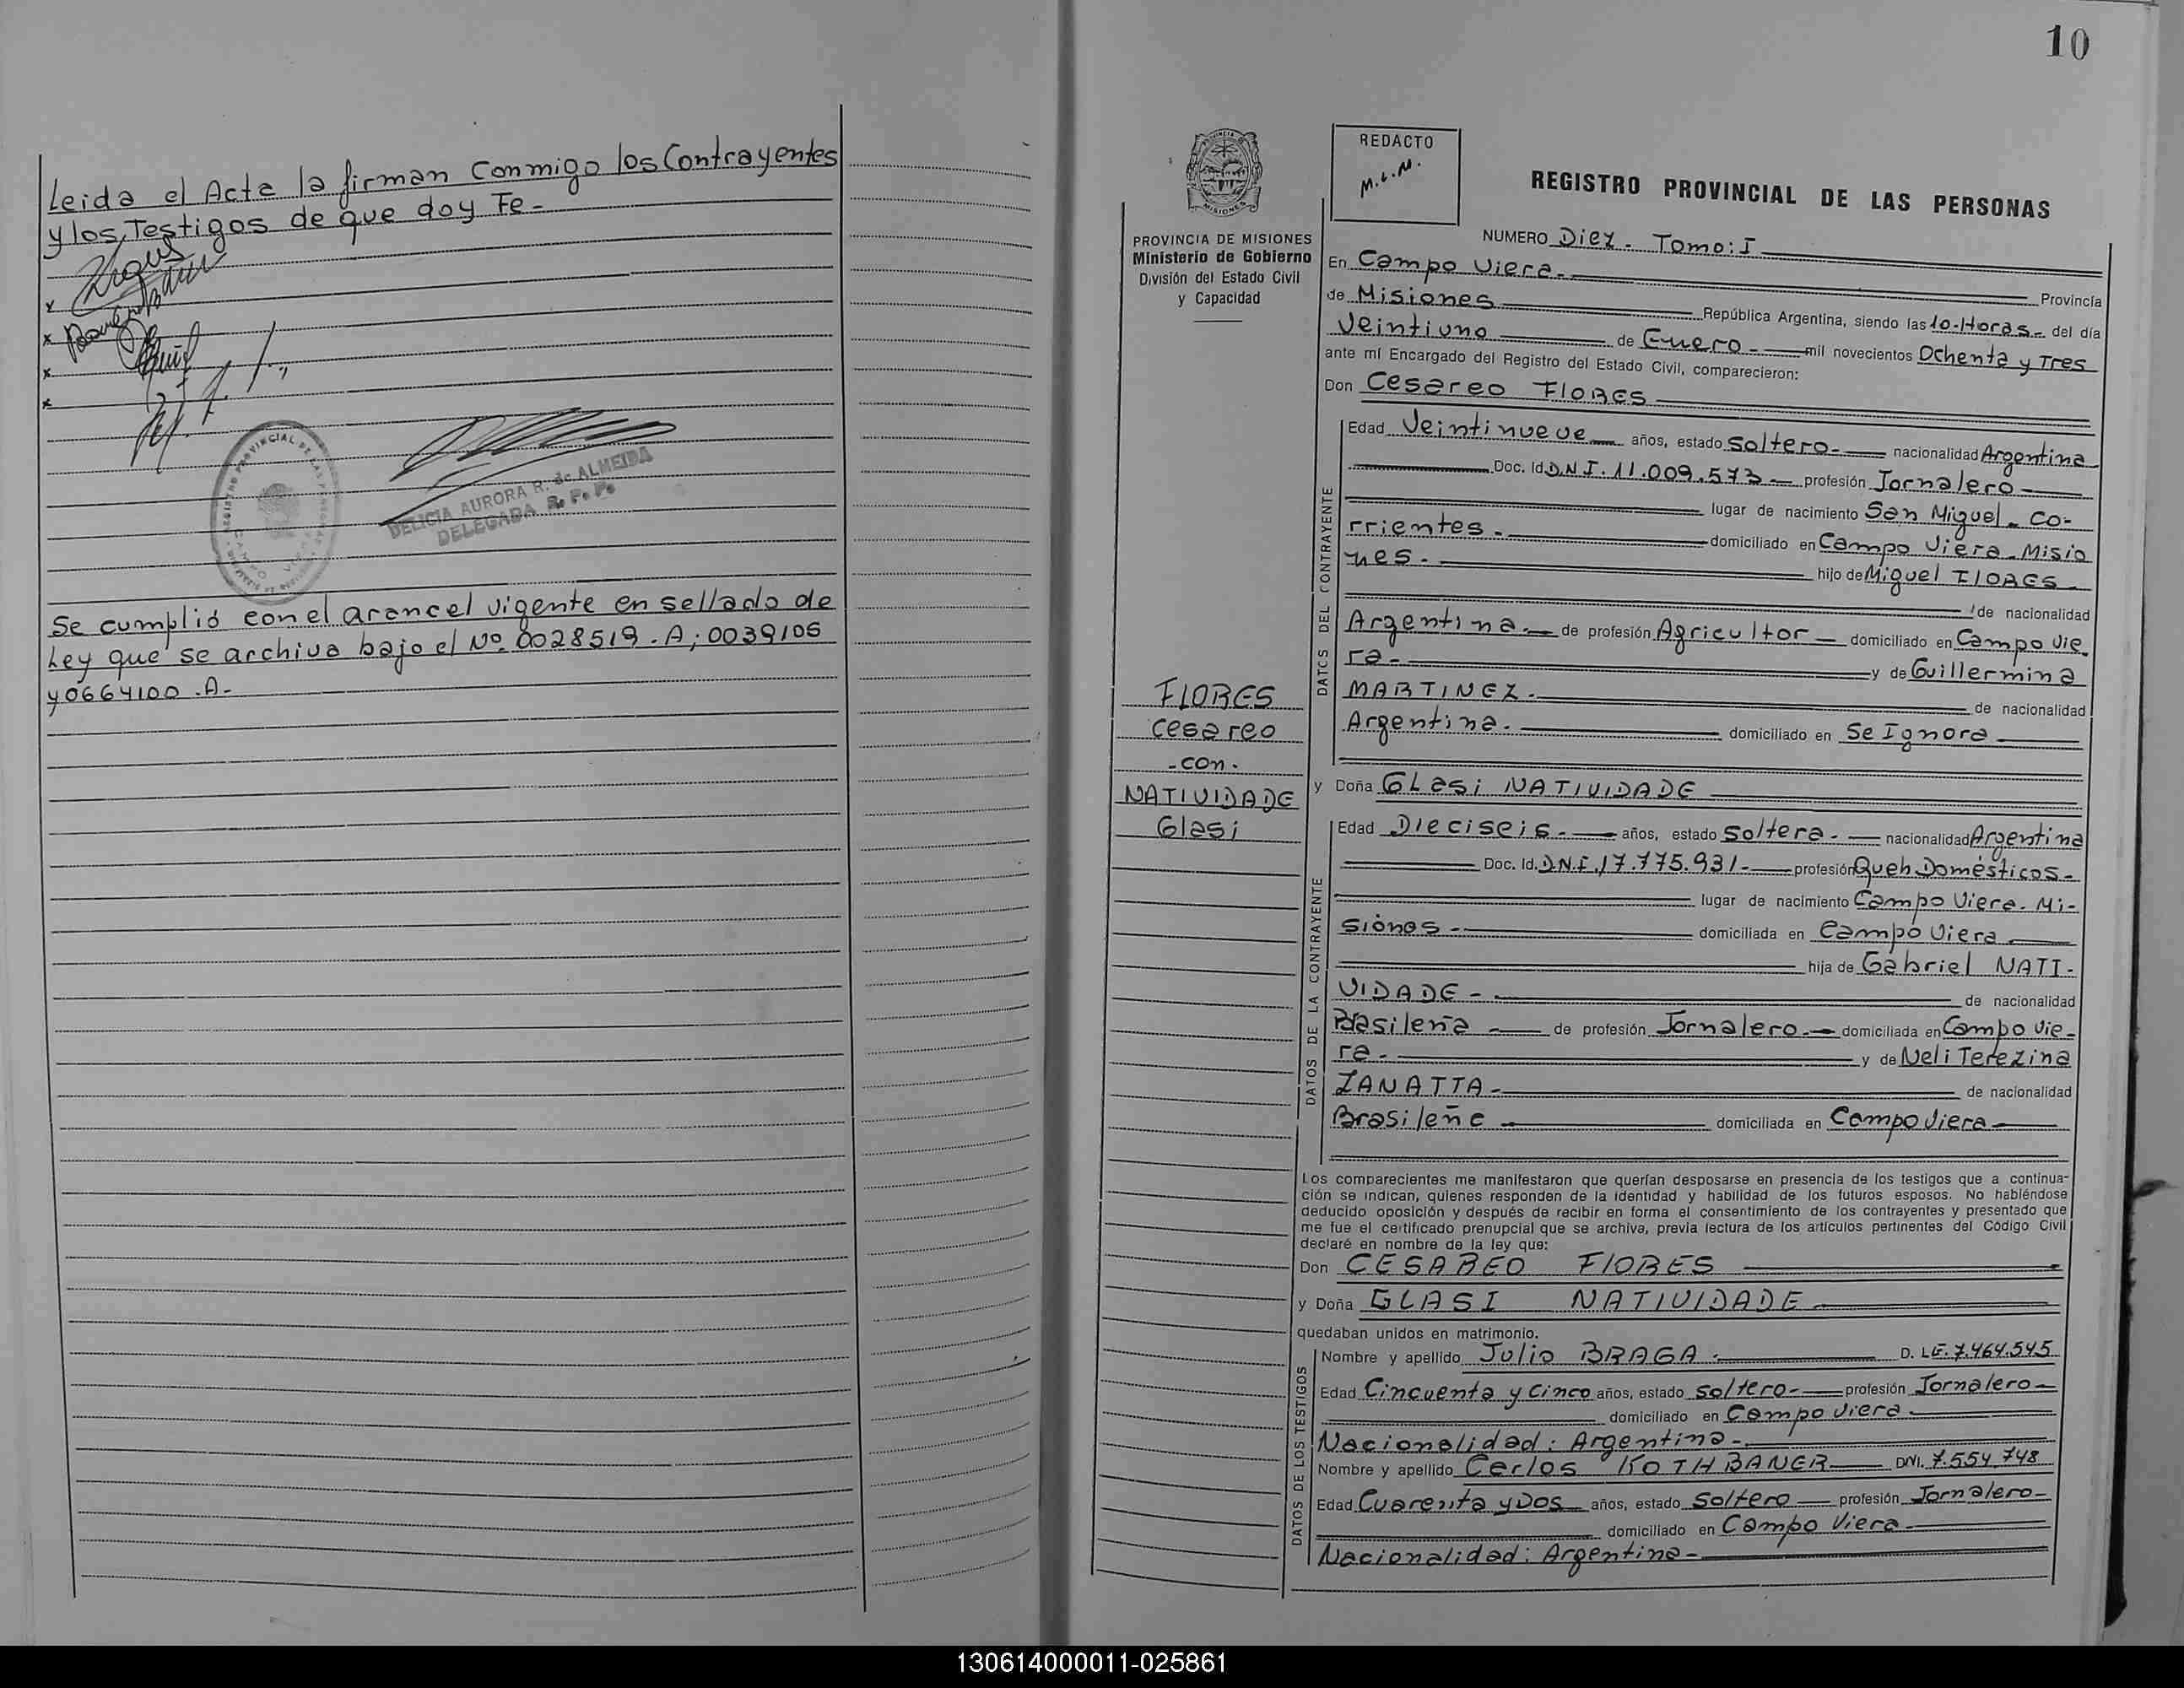 Leida el Acta la firman Conmigo los Contrayentes
y los Testigos de que doy Fe-
x
x
x
x
DELICIA AURORA R. de ALMEIDA
DELEGADA R. P. P.
Se cumplió con el arancel vigente en sellado de
Ley que se archiva bajo el Nº 0028519.A; 0039106
y 0664100.A-
10
REDACTO
M.L.M.
PROVINCIA DE MISIONES
Ministerio de Gobierno
División del Estado Civil
y Capacidad
FLORES
Cesareo
-con-
NATIVIDADE
Glasi
REGISTRO PROVINCIAL DE LAS PERSONAS
NUMERO Diez. Tomo: I
En Campo Viera. Provincia
de Misiones República Argentina, siendo las 10-Horas- del día
Veintiuno de Enero- mil novecientos Ochenta y Tres
ante mí Encargado del Registro del Estado Civil, comparecieron:
Don Cesareo FLORES
DATOS DEL CONTRAYENTE
Edad Veintinueve años, estado Soltero- nacionalidad Argentina
Doc. Id. D.N.I. 11.009.573 profesión Jornalero
lugar de nacimiento San Miguel- Co-
rrientes. domiciliado en Campo Viera-Misio
nes. hijo de Miguel FLORES
de nacionalidad
Argentina. de profesión Agricultor domiciliado en Campo Vie-
ra- y de Guillermina
MARTINEZ. de nacionalidad
Argentina. domiciliado en Se Ignora
y Doña GLasi NATIVIDADE
DATOS DE LA CONTRAYENTE
Edad Dieciseis- años, estado Soltera- nacionalidad Argentina
Doc. Id. D.N.I. 17.775.931- profesión Queh Domésticos-
lugar de nacimiento Campo Viera. Mi-
siones- domiciliada en Campo Viera
hija de Gabriel NATI-
VIDADE- de nacionalidad
Brasileña de profesión Jornalero- domiciliada en Campo Vie-
ra- y de Neli Terezina
ZANATTA- de nacionalidad
Brasileña domiciliada en Campo Viera
Los comparecientes me manifestaron que querían desposarse en presencia de los testigos que a continua-
ción se indican, quienes responden de la identidad y habilidad de los futuros esposos. No habiéndose
deducido oposición y después de recibir en forma el consentimiento de los contrayentes y presentado que
me fue el certificado prenupcial que se archiva, previa lectura de los artículos pertinentes del Código Civil
declaré en nombre de la ley que:
Don CESAREO FLORES
y Doña GLASI NATIVIDADE
quedaban unidos en matrimonio.
DATOS DE LOS TESTIGOS
Nombre y apellido Julio BRAGA. D. LE. 7.464.545
Edad Cincuenta y Cinco años, estado Soltero- profesión Jornalero-
domiciliado en Campo Viera
Nacionalidad: Argentina-
Nombre y apellido Carlos ROTHBANER DNI. 7.554.748
Edad Cuarenta y Dos años, estado Soltero profesión Jornalero-
domiciliado en Campo Viera
Nacionalidad: Argentina-
130614000011-025861